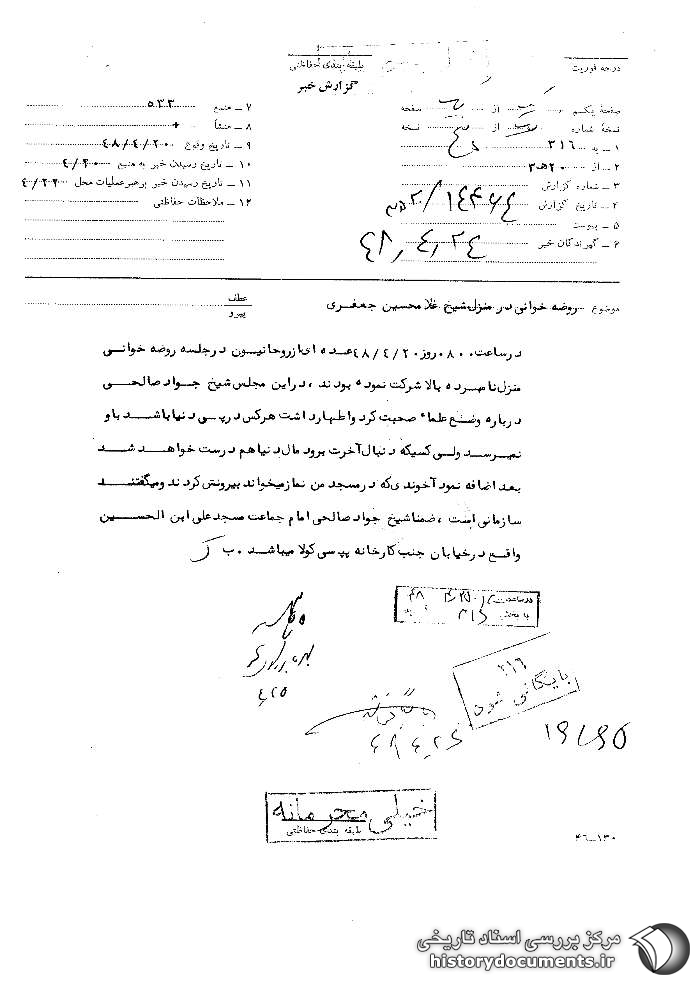 درجه فوریت
طبقه بندی حفاظتی
گزارش خبر
صفحهٔ یکم از صفحه
نسخهٔ شماره از نسخه
۱ ـ به ۳۱۶
۲ ـ از ۲۰ ه‍ ۳
۳ ـ شماره گزارش
۴ ـ تاریخ گزارش
۵ ـ پیوست
۶ ـ گیرندگان خبر
۴۸٫۴٫۲۴
۷ ـ منبع ۵۳۳
۸ ـ منشأ +
۹ ـ تاریخ وقوع ۴۸/۴/۲۰
۱۰ ـ تاریخ رسیدن خبر به منبع ۴/۲۰
۱۱ ـ تاریخ رسیدن خبر برهبر عملیات محل ۴/۲۲
۱۲ ـ ملاحظات حفاظتی
موضوع روضه خوانی در منزل شیخ غلامحسین جعفری
عطف
پیرو
در ساعت ۰۸۰۰ روز ۴۸/۴/۲۰ عده ای از روحانیون در جلسه روضه خوانی
منزل نامبرده بالا شرکت نموده بودند ، در این مجلس شیخ جواد صالحی
درباره وضع علماء صحبت کرد و اظهار داشت هرکس در پی دنیا باشد باو
نمیرسد ولی کسیکه دنبال آخرت برود مال دنیا هم درست خواهد شد
بعد اضافه نمود آخوندی که در مسجد من نماز میخواند بیرونش کردند و میگفتند
سازمانی است ، ضمنا شیخ جواد صالحی امام جماعت مسجد علی ابن الحسین
واقع در خیابان جنب کارخانه پپسی کولا میباشد . ب ک
در ساعت
۳۱۶
بایگانی شود
خیلی محرمانه
طبقه بندی حفاظتی
۴۶ـ۱۳۰
مرکز بررسی اسناد تاریخی
historydocuments.ir